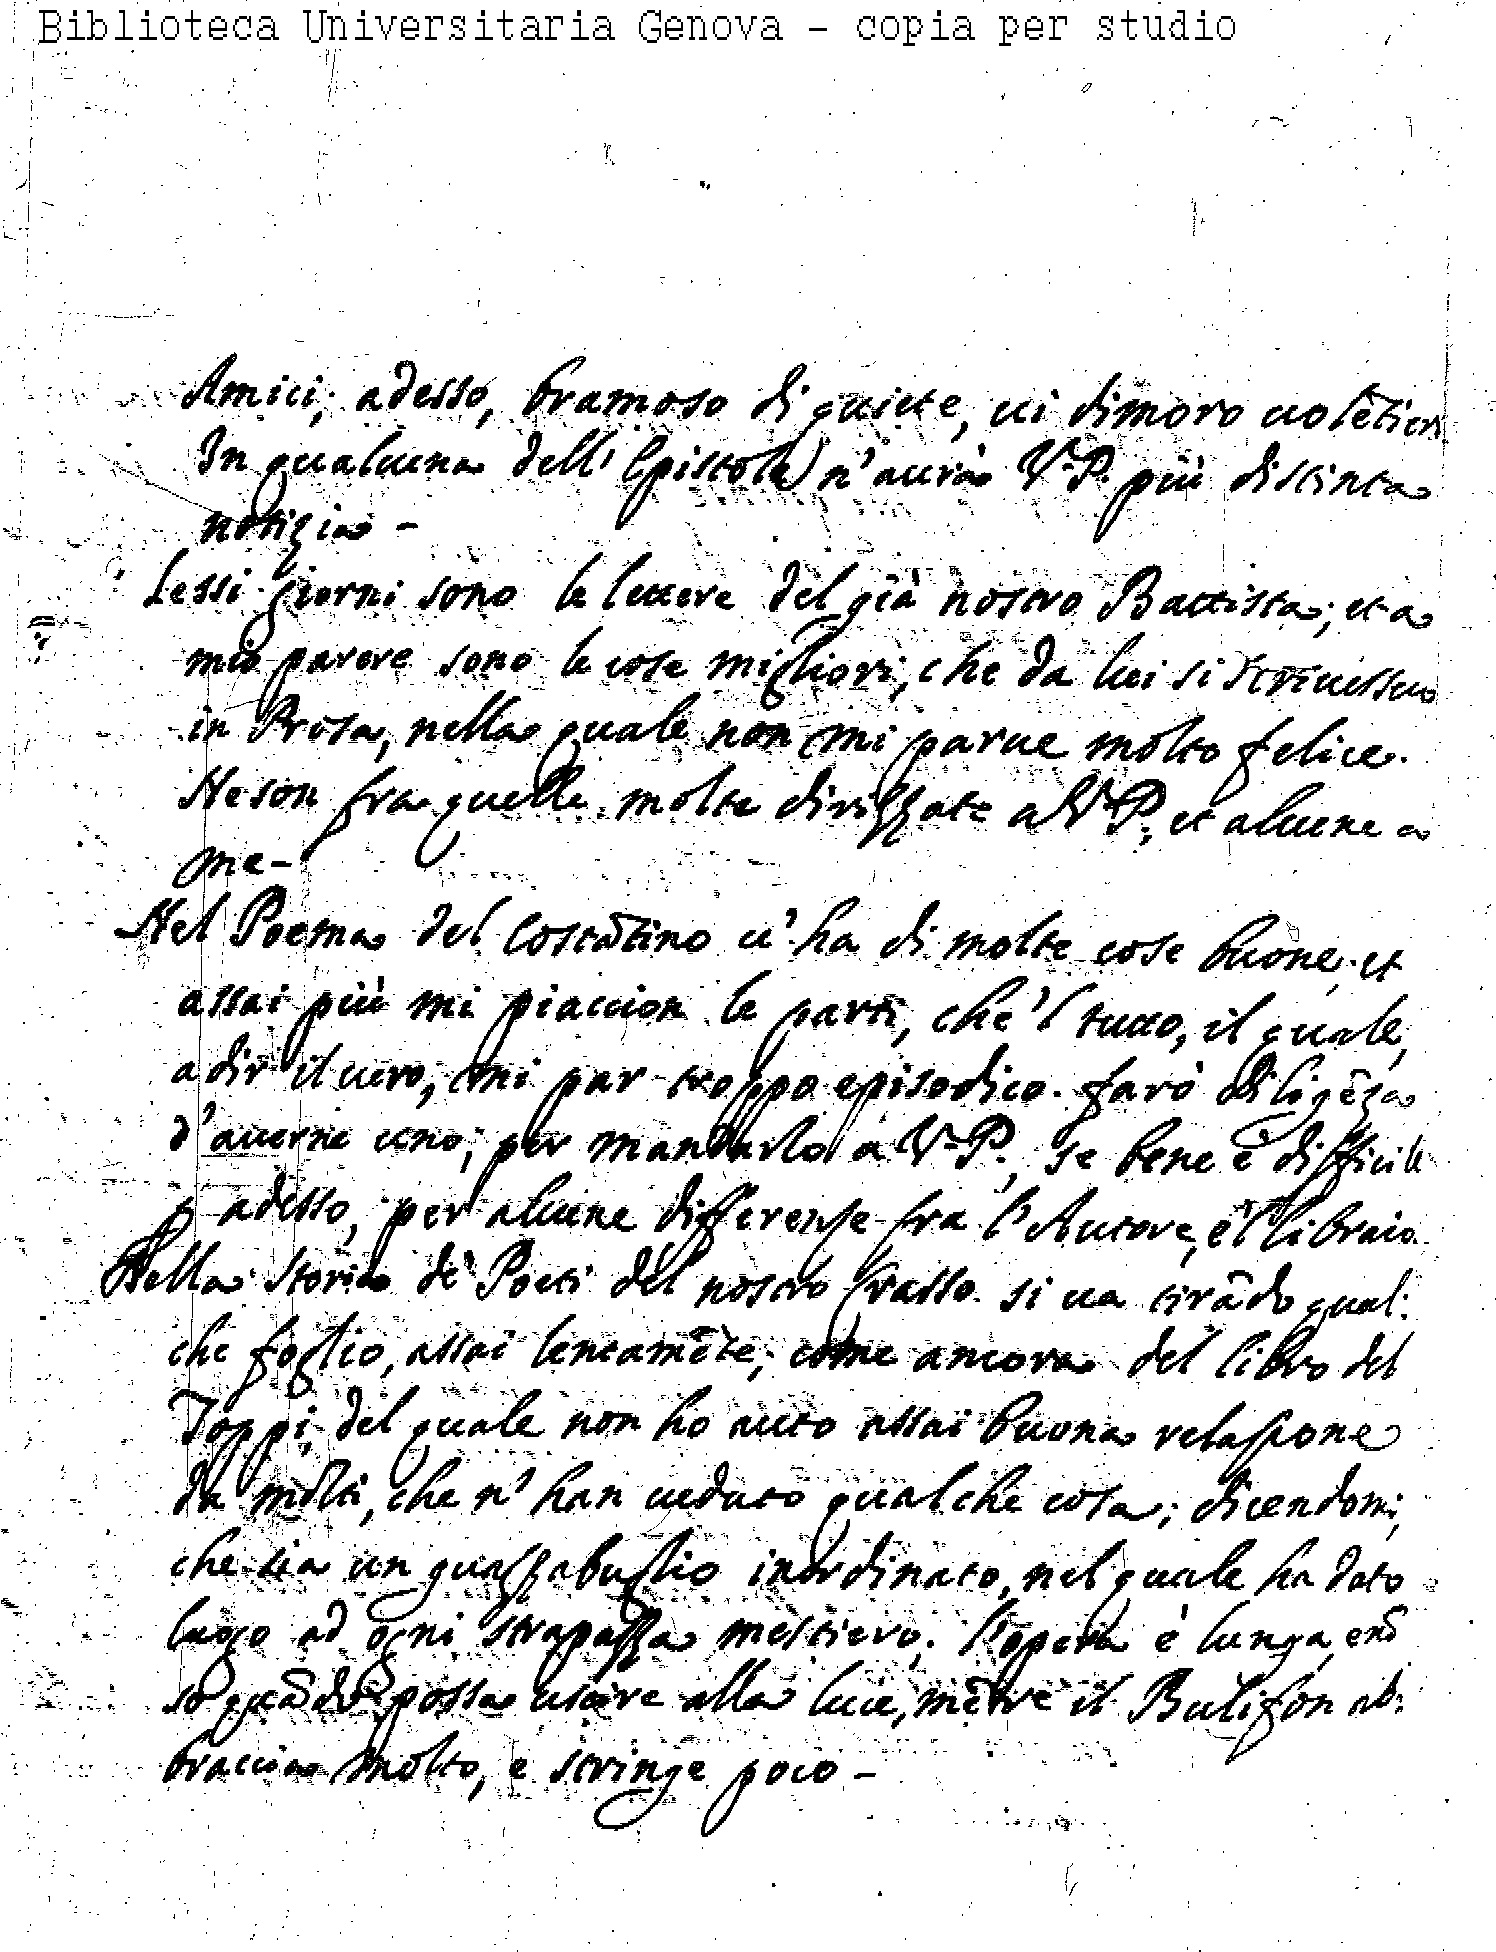 Biblioteca Universitaria Genova - copia per studio
Amici; adesso, bramoso di quiete, ui dimoro uolētieri
In qualcuna dell' Epistole n'aurà V. P. più distinta
notizia -
Lessi giorni sono le lettere del già nostro Battista; et a
mio parere sono le cose migliori, che da lui si scriuesser
in Prosa, nella quale non mi parue molto felice.
Ne son fra quelle molte dirizzate a V. P., et alcune a
me -
Nel Poema del Costātino u'ha di molte cose buone, et
assai più mi piaccion le parti, che 'l tutto, il quale,
a dir il uero, mi par troppo episodico. farò diligēza
d'auerne uno, per mandarlo a V. P., se bene è difficile
p adesso, per alcune differenze fra l'Autore, e 'l libraio.
Della Storia de' Poeti del nostro Crasso si ua tirādo qual:
che foglio, assai lentamēte; come ancora del libro del
Toppi, del quale non ho auto assai buona relazione
da molti, che n'han ueduto qualche cosa; dicendomi,
che sia un guazzabuglio inordinato, nel quale ha dato
luogo ad ogni strapazza mestiero. l'opera è lunga, e nō
so quādo possa uscire alla luce, mētre il Bulifon ab:
braccia molto, e stringe poco -